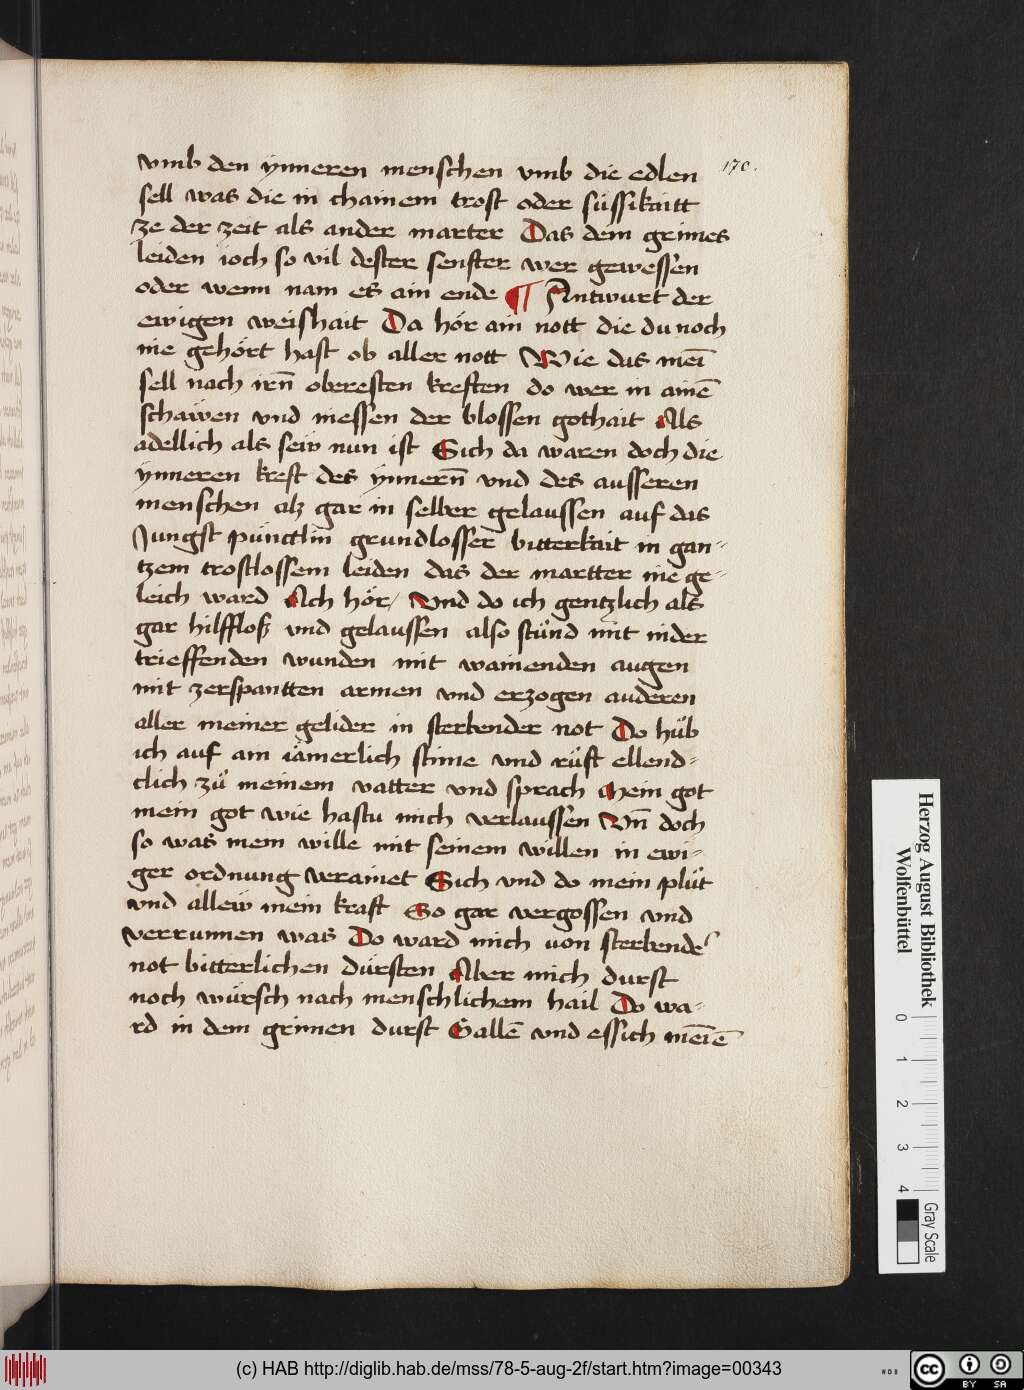 vmb den ynneren menschen vmb die edlen
170.
sell was die in chainem trost oder süssikaitt
ze der zeit als ander marter Das dem grimes
leiden ioch so vil dester senfter wer gewessen
oder wenn nam es ain ende ¶ Antwurt der
ewigen weishait Da hör ain nott die du noch
nie gehört hast ob aller nott Wie das meī
sell nach irn̄ oberesten kreften do wer in ainē
schawen vnd niessen der blossen gothait Als
adellich als seiv nun ist Sich da waren doch die
ynneren kreft des ynnern̄ vnd des ausseren
menschen alz gar in selber gelaussen auf das
Jungst pünctlin grundlosser bitterkait in gan-
tzem trostlossem leiden das der martter nie ge-
leich ward Ach hör/ Vnd do ich gentzlich als
gar hilffloß vnd gelaussen also stünd mit nider
trieffenden wunden mit wainenden augen
mit zerspantten armen vnd erzogen auderen
aller meiner gelider in sterbender not Do hüb
ich auf am iämerlich stime vnd rüft ellend-
clich zů meinem vatter vnd sprach Mein got
mein got wie hastu mich verlaussen Vn̄ doch
so was mein wille mit seinem willen in ewi-
ger ordnung verainet Sich vnd do mein plůt
vnd allew mein kraft So gar vergossen vnd
verrunnen was Do ward mich von sterbender
not bitterlichen dürsten Aber mich durst
noch würsch nach menschlichem hail Do wa-
rd in dem grimen durst Gallē vnd essich meīē
Herzog August Bibliothek
Wolfenbüttel
0 1 2 3 4
Gray Scale
(c) HAB http://diglib.hab.de/mss/78-5-aug-2f/start.htm?image=00343
WDB
CC BY SA